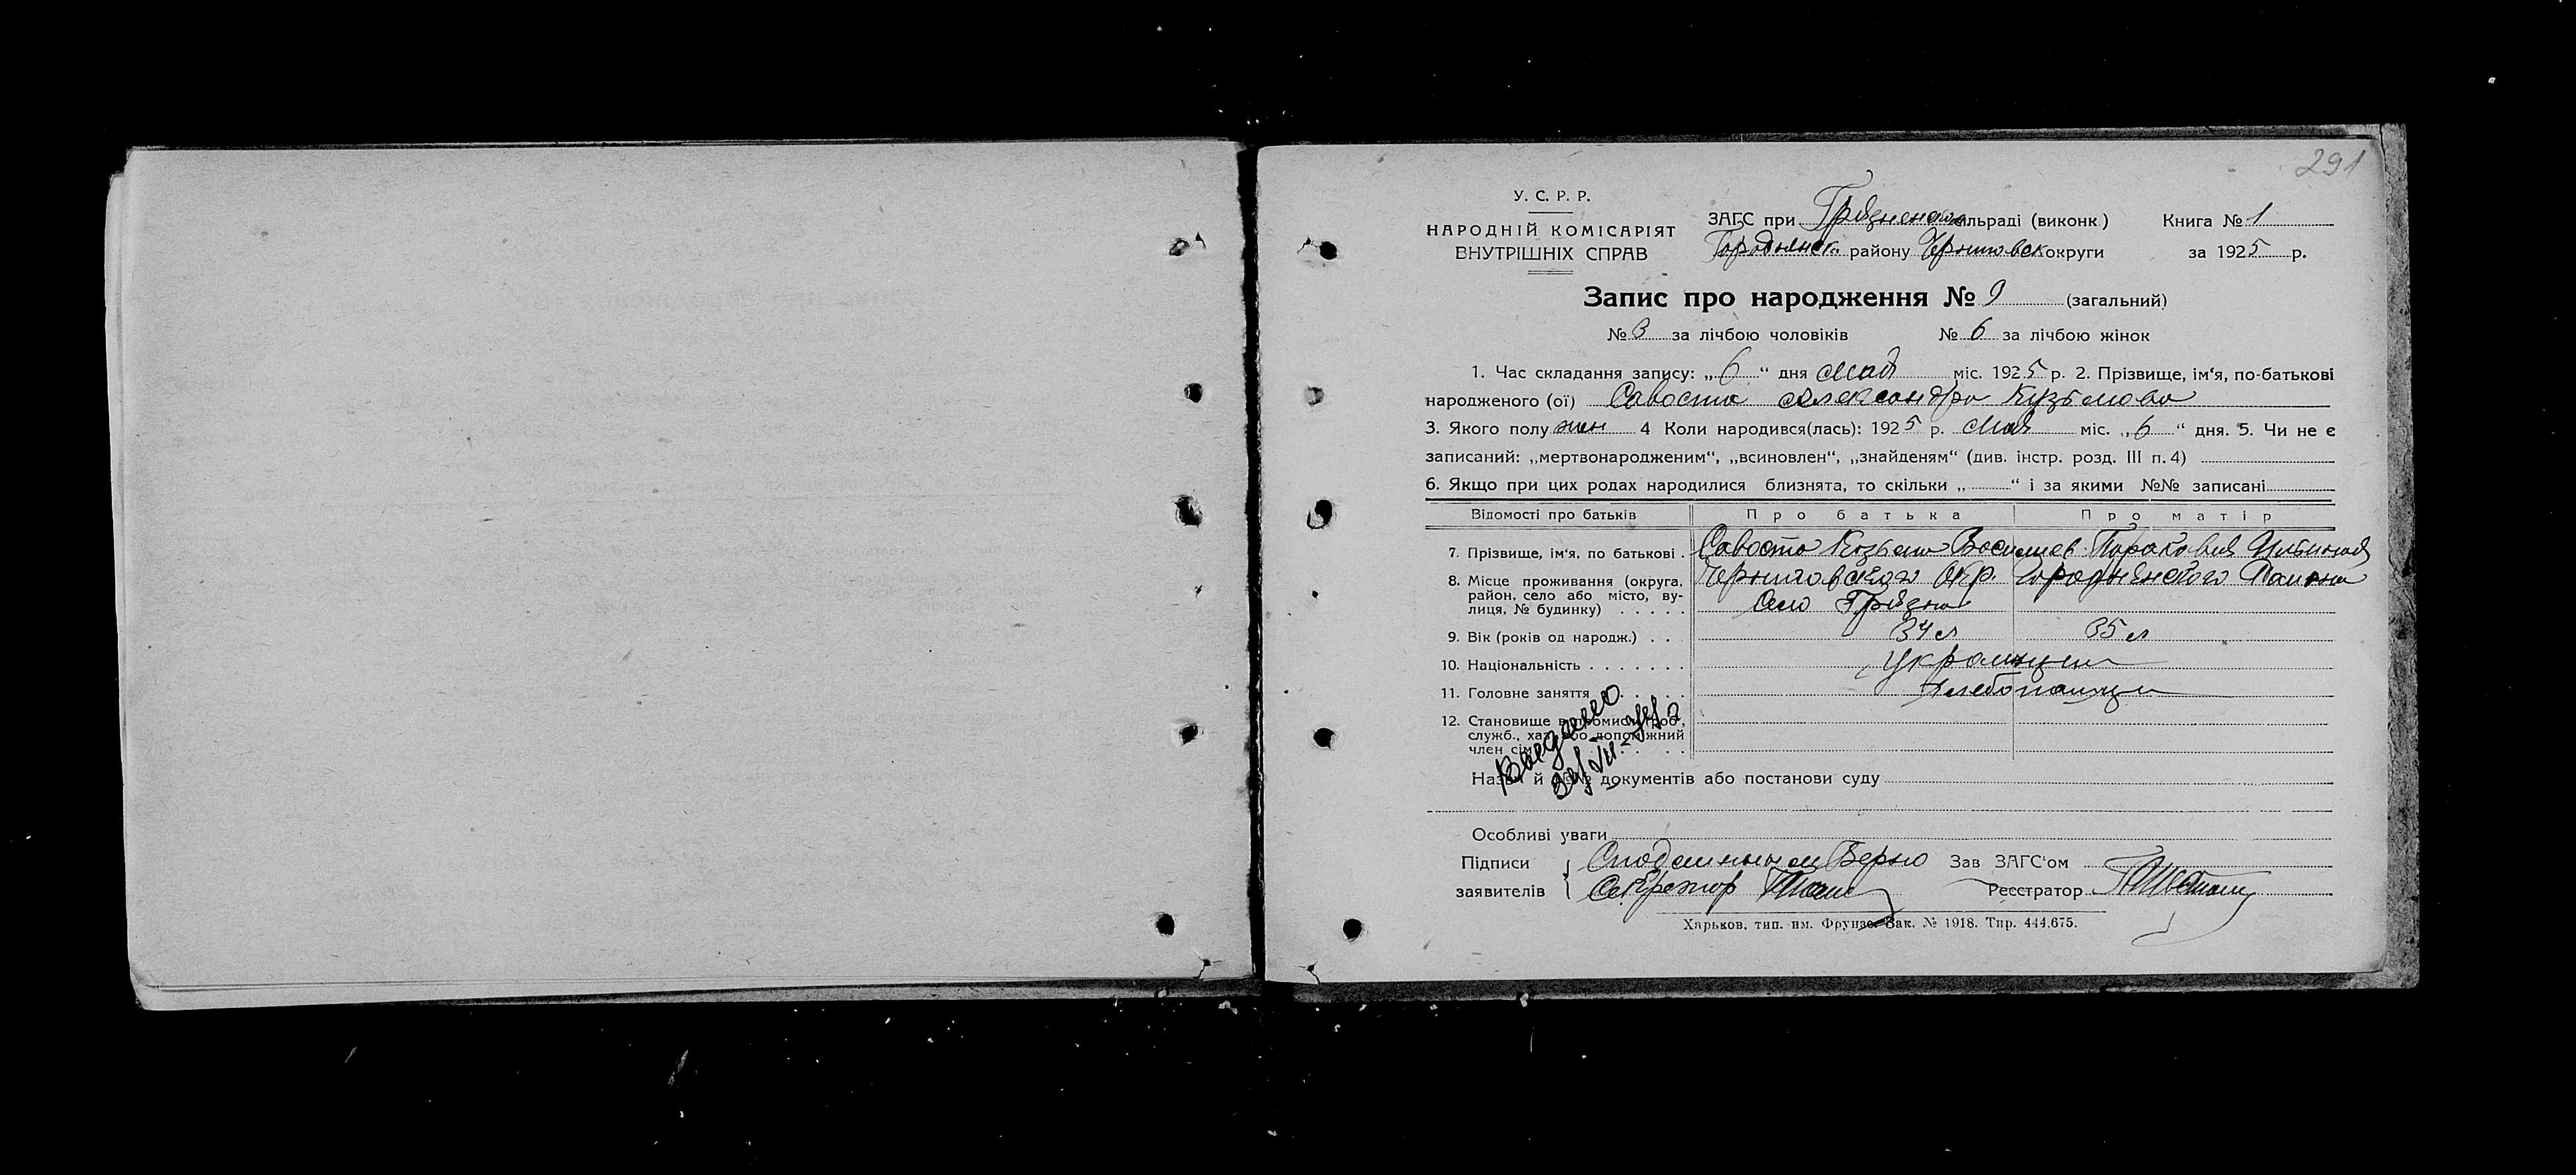 291
У. С. Р. Р.
НАРОДНІЙ КОМІСАРІЯТ
ВНУТРІШНІХ СПРАВ
ЗАГС при Грязненском ільраді (виконк) Книга № 1
Городнянск району Черниговск округи за 1925 р.
Запис про народження № 9 (загальний)
№ 3 за лічбою чоловіків № 6 за лічбою жінок
1. Час складання запису: „ 6 “ дня мая міс. 1925 р. 2. Прізвище, ім'я, по-батькові
народженого (ої) Савоста Александра Кузьмова
3. Якого полу жен 4 Коли народився(лась): 1925 р. мая міс. „ 6 “ дня. 5. Чи не є
записаний: „мертвонародженим“, „всиновлен“, „знайденям“ (див. інстр. розд. III п. 4)
6. Якщо при цих родах народилися близнята, то скільки „ “ і за якими №№ записані
Відомості про батьків Про батька Про матір
7. Прізвище, ім'я, по батькові . Савоста Козьма Василиев Параковия
8. Місце проживання (округа, район, село або місто, ву-лиця, № будинку) . . . . . Черниговского Окр. Городнянского Района
Село Грязна
9. Вік (років од народж.) . . 34 л 35 л
10. Національність . . . . . . . Украинцы
11. Головне заняття . . . . . Хлебопашцы
12. Становище в промислі (роб.,
служб., хаз. або допоміжний
член сім
Выдано
Назва й №№ документів або постанови суду
Особливі уваги
Підписи
заявителів
С подлинным Верно Зав ЗАГС'ом
Секретар Реєстратор
Харьков, тип. им. Фрунзе. Зак. № 1918. Тир. 444.675.